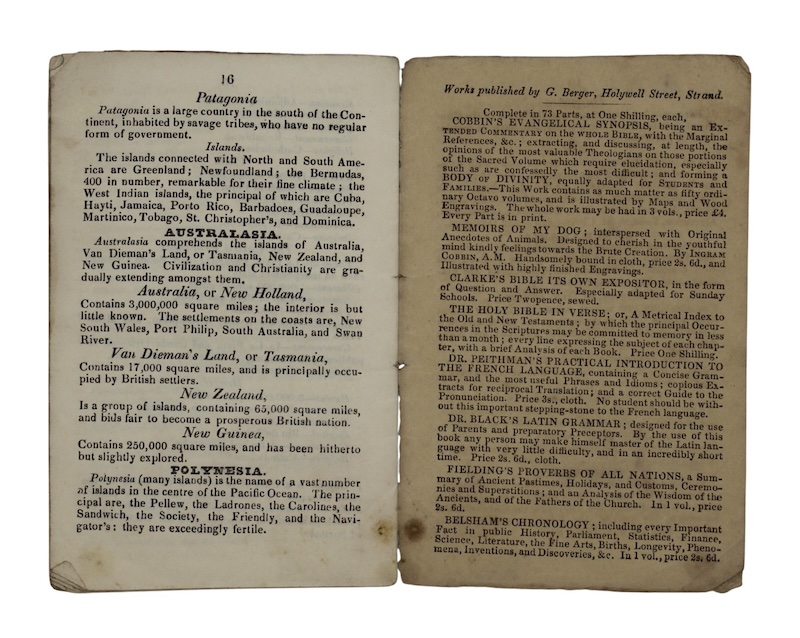 16
Patagonia
Patagonia is a large country in the south of the Con-
tinent, inhabited by savage tribes, who have no regular
form of government.
Islands.
The islands connected with North and South Ame-
rica are Greenland; Newfoundland; the Bermudas,
400 in number, remarkable for their fine climate; the
West Indian islands, the principal of which are Cuba,
Hayti, Jamaica, Porto Rico, Barbadoes, Guadaloupe,
Martinico, Tobago, St. Christopher's, and Dominica.
AUSTRALASIA.
Australasia comprehends the islands of Australia,
Van Dieman's Land, or Tasmania, New Zealand, and
New Guinea. Civilization and Christianity are gra-
dually extending amongst them.
Australia, or New Holland,
Contains 3,000,000 square miles; the interior is but
little known. The settlements on the coasts are, New
South Wales, Port Philip, South Australia, and Swan
River.
Van Dieman's Land, or Tasmania,
Contains 17,000 square miles, and is principally occu-
pied by British settlers.
New Zealand,
Is a group of islands, containing 65,000 square miles,
and bids fair to become a prosperous British nation.
New Guinea,
Contains 250,000 square miles, and has been hitherto
but slightly explored.
POLYNESIA.
Polynesia (many islands) is the name of a vast number
of islands in the centre of the Pacific Ocean. The prin-
cipal are, the Pellew, the Ladrones, the Carolines, the
Sandwich, the Society, the Friendly, and the Navi-
gator's: they are exceedingly fertile.
Works published by G. Berger, Holywell Street, Strand.
Complete in 73 Parts, at One Shilling, each,
COBBIN'S EVANGELICAL SYNOPSIS, being an Ex-
TENDED COMMENTARY on the WHOLE BIBLE, with the Marginal
References, &c.; extracting, and discussing, at length, the
opinions of the most valuable Theologians on those portions
of the Sacred Volume which require elucidation, especially
such as are confessedly the most difficult; and forming a
BODY OF DIVINITY, equally adapted for STUDENTS and
FAMILIES.—This Work contains as much matter as fifty ordi-
nary Octavo volumes, and is illustrated by Maps and Wood
Engravings. The whole work may be had in 3 vols., price £4.
Every Part is in print.
MEMOIRS OF MY DOG; interspersed with Original
Anecdotes of Animals. Designed to cherish in the youthful
mind kindly feelings towards the Brute Creation. By INGRAM
COBBIN, A.M. Handsomely bound in cloth, price 2s. 6d., and
Illustrated with highly finished Engravings.
CLARKE'S BIBLE ITS OWN EXPOSITOR, in the form
of Question and Answer. Especially adapted for Sunday
Schools. Price Twopence, sewed.
THE HOLY BIBLE IN VERSE; or, A Metrical Index to
the Old and New Testaments; by which the principal Occur-
rences in the Scriptures may be committed to memory in less
than a month; every line expressing the subject of each chap-
ter, with a brief Analysis of each Book. Price One Shilling.
DR. PEITHMAN'S PRACTICAL INTRODUCTION TO
THE FRENCH LANGUAGE, containing a Concise Gram-
mar, and the most useful Phrases and Idioms; copious Ex-
tracts for reciprocal Translation; and a correct Guide to the
Pronunciation. Price 3s., cloth. No student should be with-
out this important stepping-stone to the French language.
DR. BLACK'S LATIN GRAMMAR; designed for the use
of Parents and preparatory Preceptors. By the use of this
book any person may make himself master of the Latin lan-
guage with very little difficulty, and in an incredibly short
time. Price 2s. 6d., cloth.
FIELDING'S PROVERBS OF ALL NATIONS, a Sum-
mary of Ancient Pastimes, Holidays, and Customs, Ceremo-
nies and Superstitions; and an Analysis of the Wisdom of the
Ancients, and of the Fathers of the Church. In 1 vol., price
2s. 6d.
BELSHAM'S CHRONOLOGY; including every Important
Fact in public History, Parliament, Statistics, Finance,
Science, Literature, the Fine Arts, Births, Longevity, Pheno-
mena, Inventions, and Discoveries, &c. In 1 vol., price 2s. 6d.